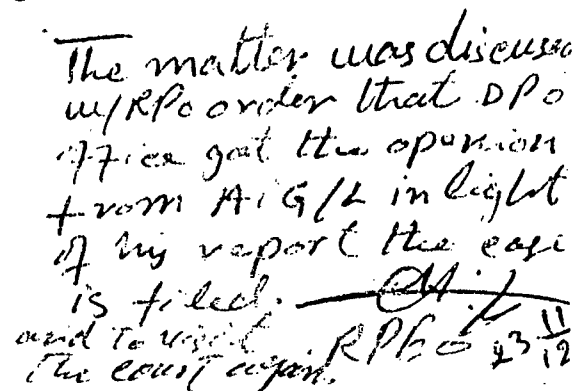 The matter was discused
w/RPo order that DPo
office got the openion
from AiG/L in light
of his report the case
is filed.
and to visit
the court again. RPO
23 11/12